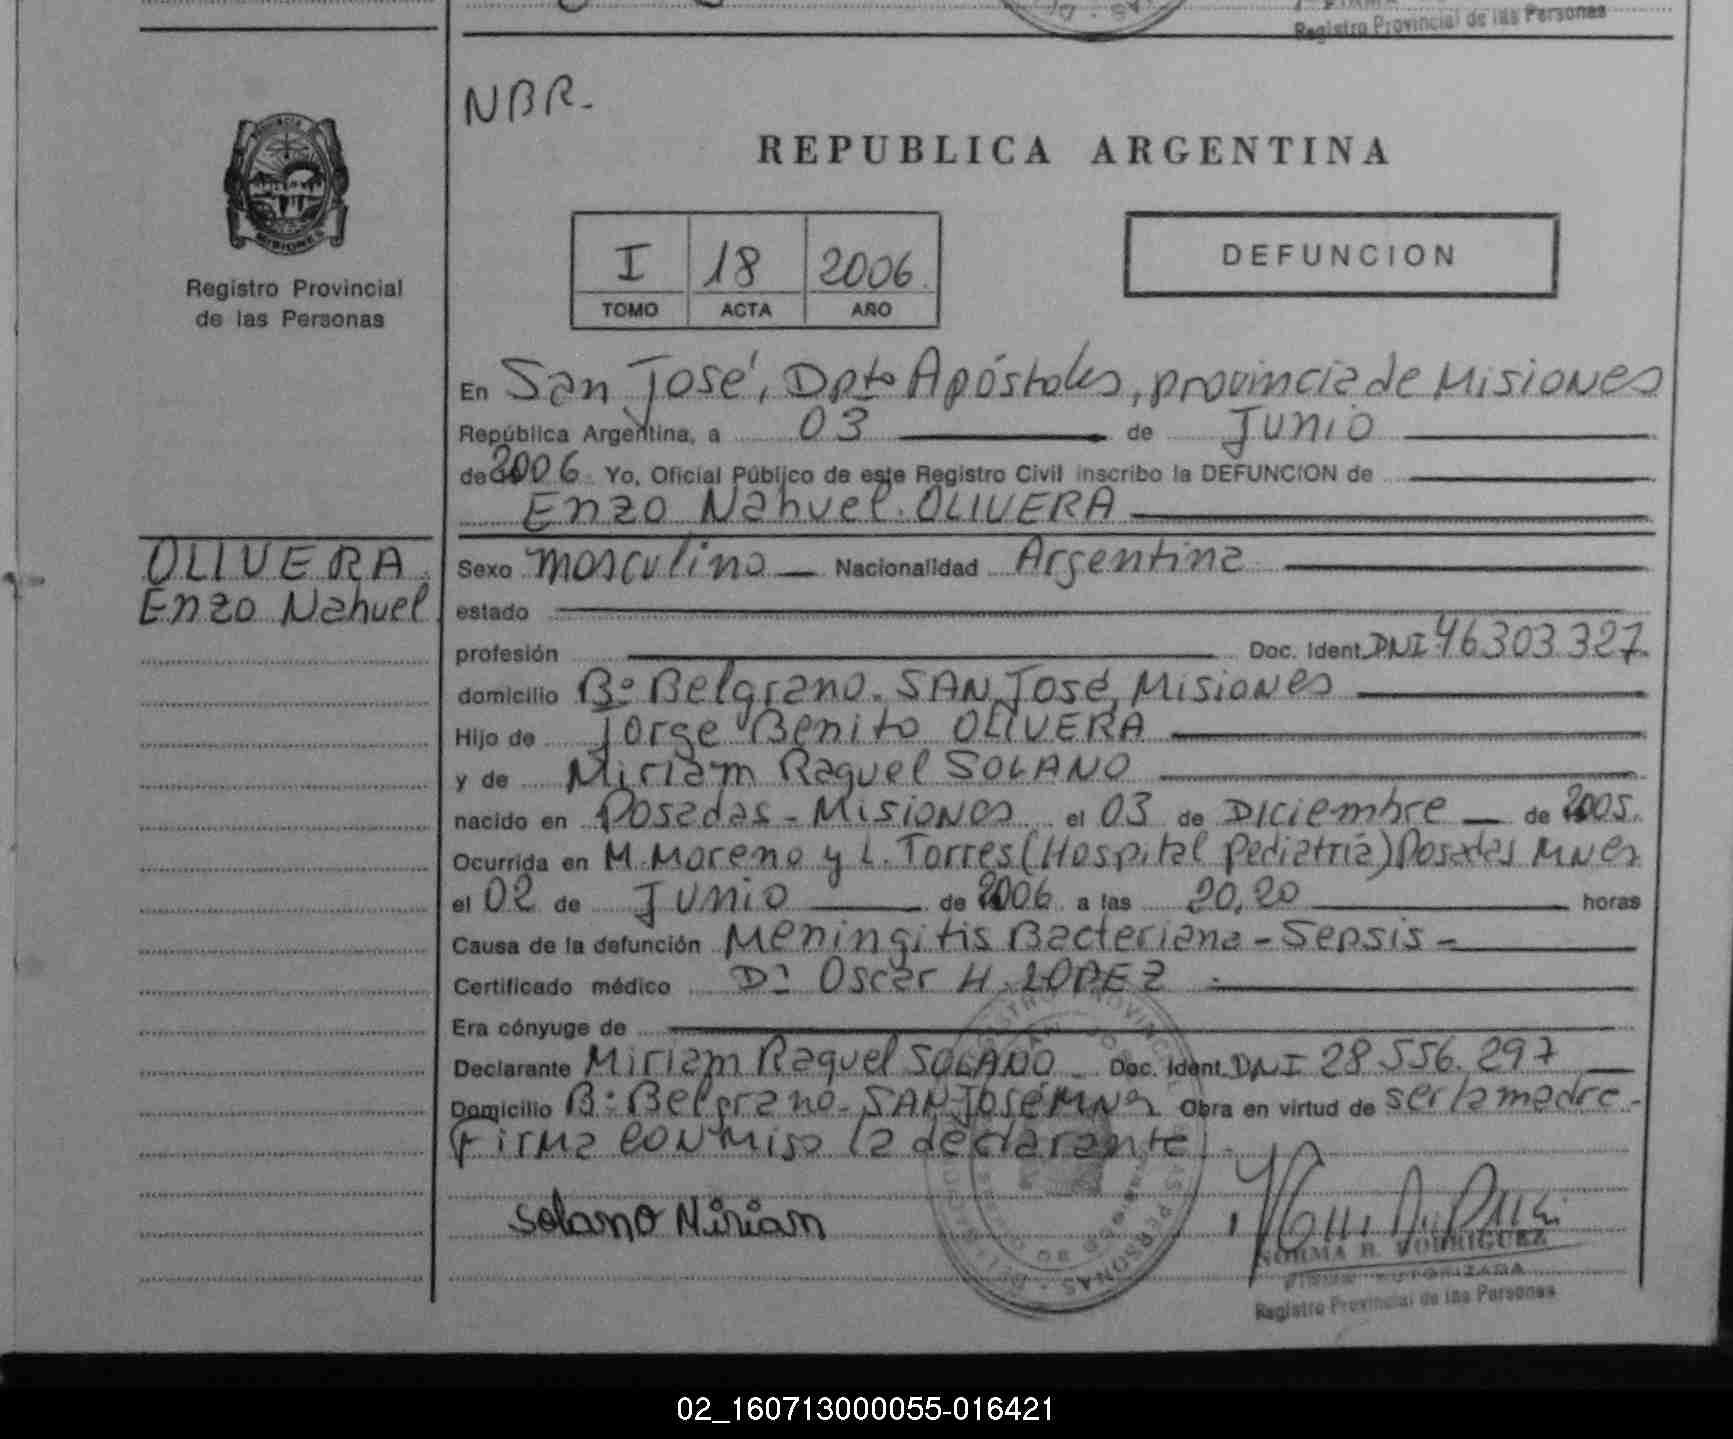 Registro Provincial de las Personas
NBR.
REPUBLICA ARGENTINA
PROVINCIA DE
MISIONES
Registro Provincial
de las Personas
I 18 2006
TOMO ACTA AÑO
DEFUNCION
En San José, Dpto Apóstoles, provincia de Misiones
República Argentina, a 03 de Junio
de 2006 Yo, Oficial Público de este Registro Civil inscribo la DEFUNCION de
Enzo Nahuel OLIVERA
OLIVERA
Enzo Nahuel
Sexo masculino Nacionalidad Argentina
estado
profesión Doc. Ident. DNI 46303327
domicilio Bº Belgrano. SAN José, Misiones
Hijo de Jorge Benito OLIVERA
y de Miriam Raquel SOLANO
nacido en Posadas - Misiones el 03 de Diciembre de 2005.
Ocurrida en M. Moreno y L. Torres (Hospital Pediatría) Posadas Mnes
el 02 de Junio de 2006 a las 20,20 horas
Causa de la defunción Meningitis Bacteriana - Sepsis -
Certificado médico Dr Oscar H. LOPEZ
Era cónyuge de
Declarante Miriam Raquel SOLANO Doc. Ident. DNI 28.556.297
Domicilio Bº Belgrano - SAN José Mnes Obra en virtud de ser la madre -
Firma conmigo la declarante
Solano Miriam
NORMA B. RODRIGUEZ
FIRMA AUTORIZADA
Registro Provincial de las Personas
02_160713000055-016421